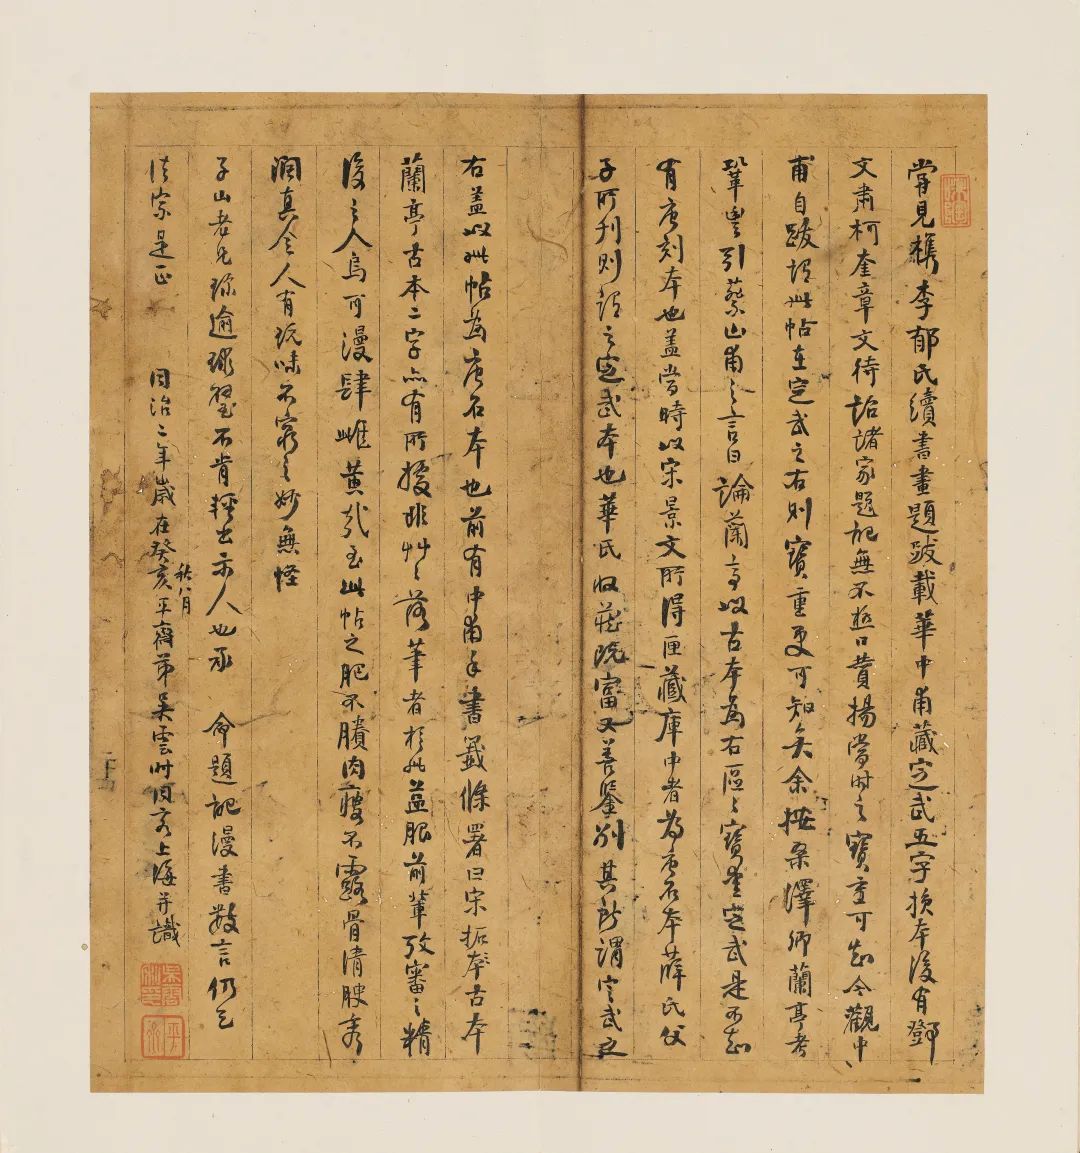 嘗見檇李郁氏續書畫題跋載華中甫藏定武五字損本後有鄧
文肅柯奎章文待詔諸家題記無不極口贊揚當時之寶重可知今觀中
甫自跋謂此帖在定武之右則寶重更可知矣余按桑澤卿蘭亭考
鞏豐引蔡山甫之言曰論蘭亭以古本為右區區寶愛定武是不知
有唐刻本也蓋當時以宋景文所得匣藏庫中者為唐石本薛氏父
子所刊則謂之定武本也華氏收藏既富又善鑒別其所謂定武之
右蓋以此帖為唐石本也前有中甫手書籤條署曰宋拓本古本
蘭亭古本二字亦有所據非艸艸落筆者於此益服前輩攷審之精
後之人烏可漫肆雌黃哉至此帖之肥不賸肉瘦不露骨清腴秀
潤真令人有玩味不窮之妙無怪
子山老兄珍逾球璧不肯輕出示人也承 命題記漫書數言仍乞
法家是正 同治二年歲在癸亥秋八月平齋弟吳雲時同客上海并識